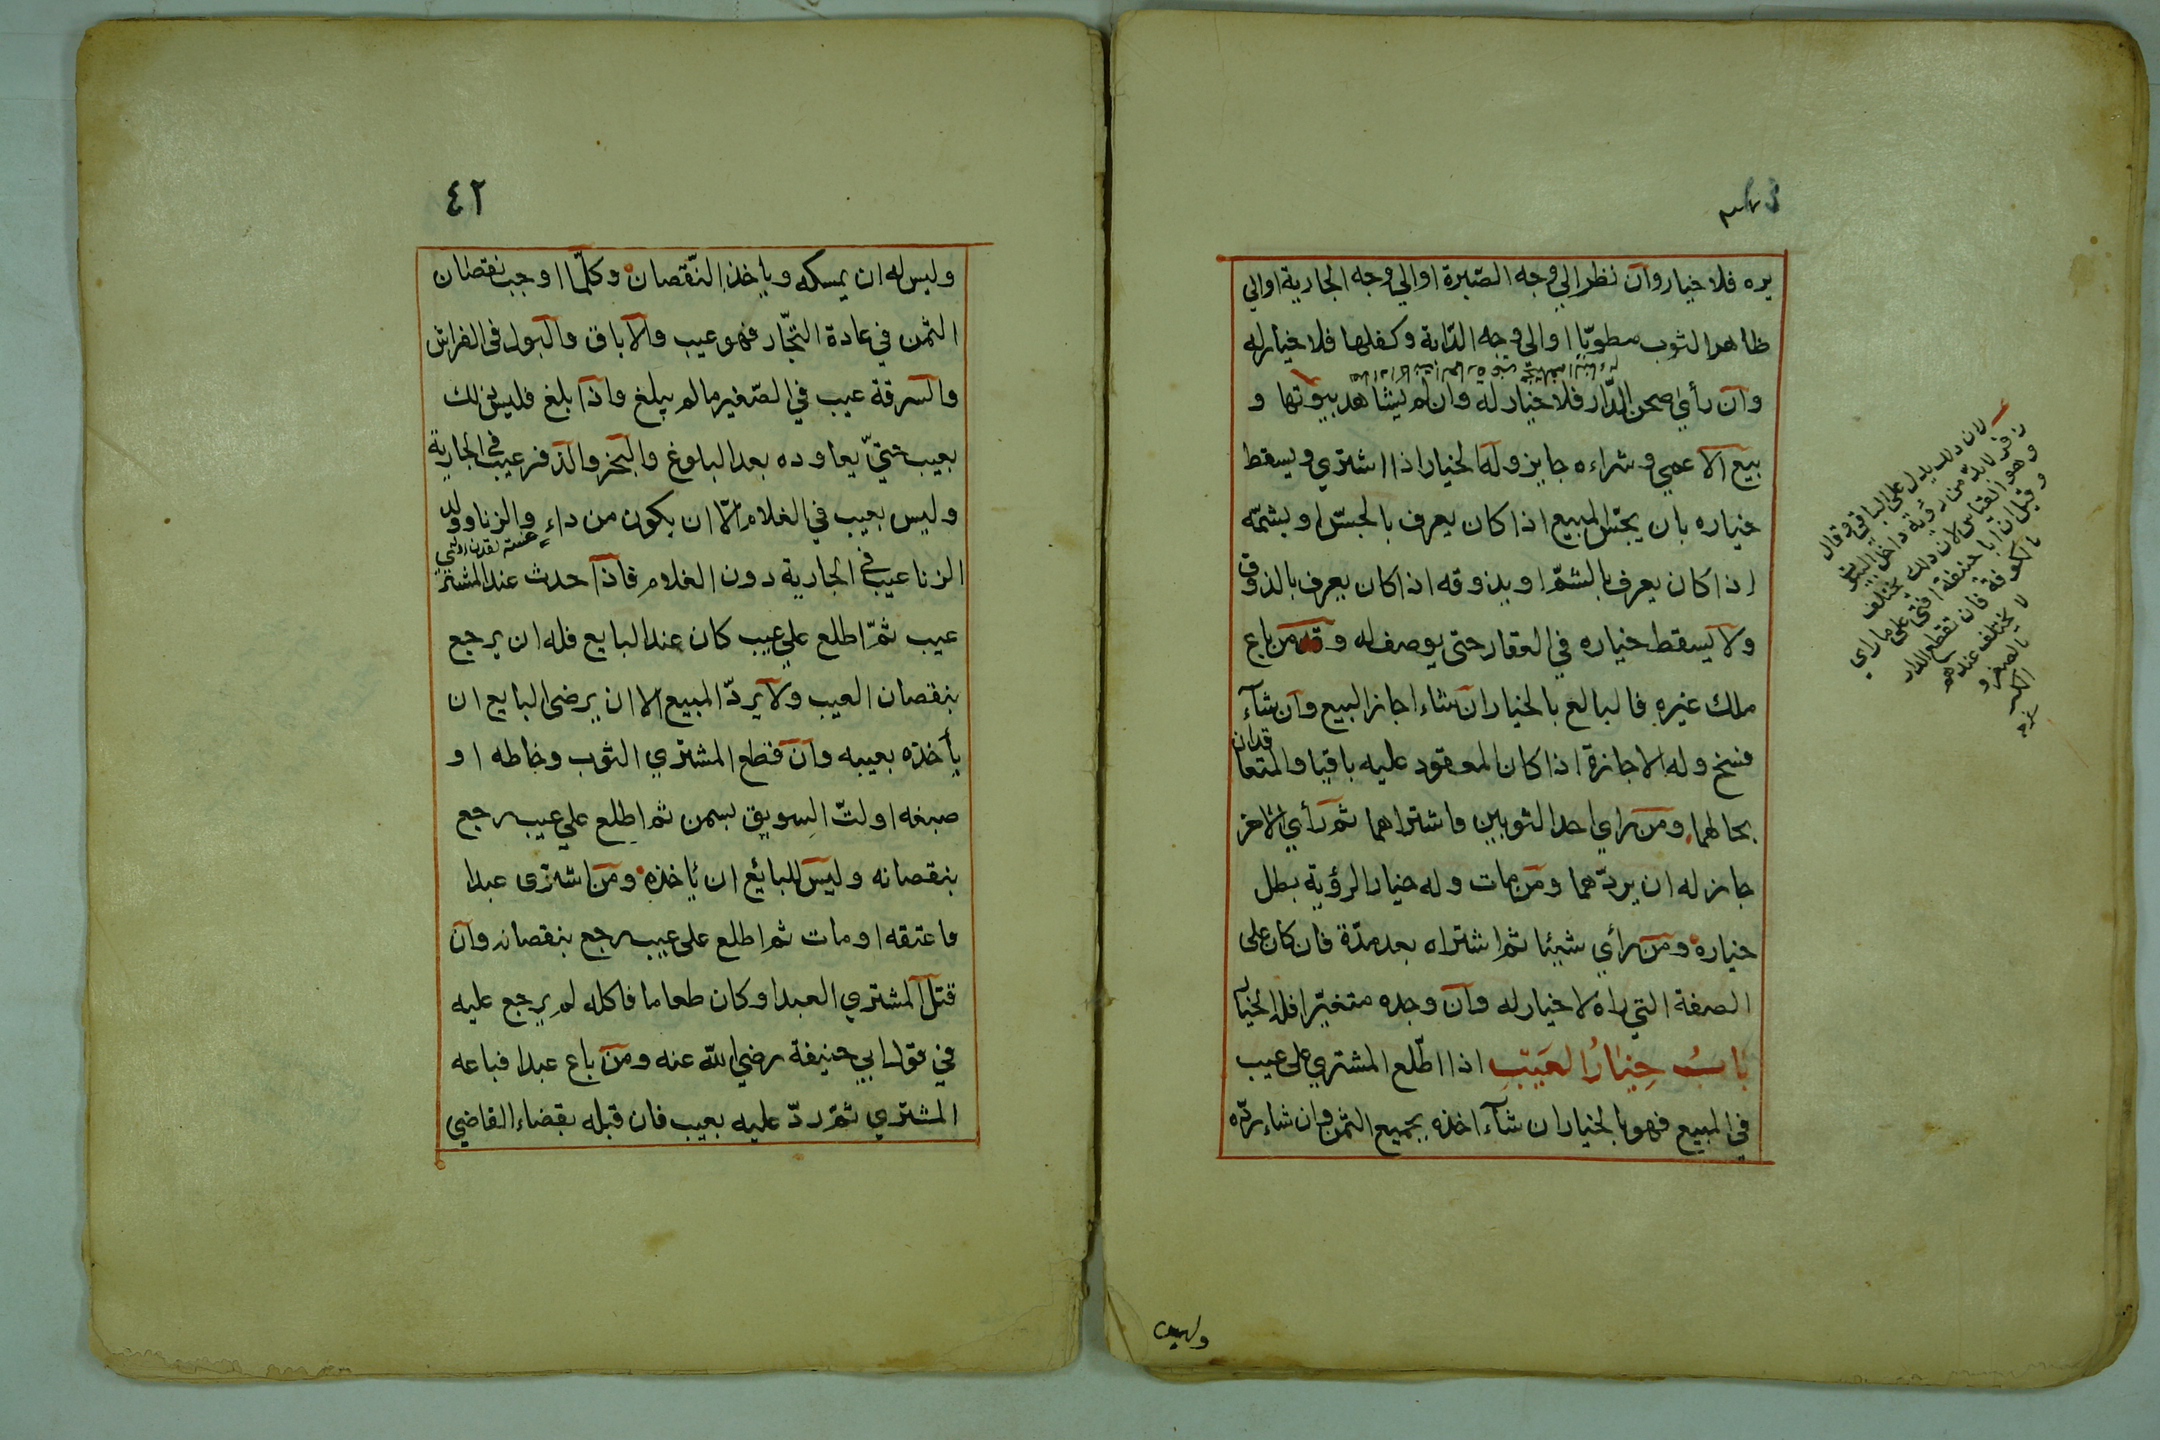 يره فلا خيار وان نظر الي وجه الصّبرة او الي وجه الجارية او الي
ظاهر الثوب مطويّا او الى وجه الدّابة وكفلها فلا خيار له
وان رأي صحن الدّار فلا خيار له وان لم يشاهد بيوتها و
بيع الاعمي وشراءه جايز وله الخيار اذا اشتري ويسقط
خياره بان يجسّ المبيع اذا كان يعرف بالجسّ او يشمّه
اذا كان يعرف بالشمّ او يذوقه اذا كان يعرف بالذوق
ولا يسقط خياره في العقار حتى يوصف له ومن باع
ملك غيره فالبالغ بالخيار ان شاء اجاز البيع وان شآء
فسخ وله الاجازة اذا كان المعقود عليه باقيا والمتعاقدان
بحالهما ومن راي احد الثوبين واشتراهما ثم رأي الاخر
جاز له ان يردّهما ومن مات وله خيار الرؤية بطل
خياره ومن رأي شيئا ثم اشتراه بعد مدّة فان كان على
الصفة التي راه لا خيار له وان وجده متغيّرا فله الخيار
باب خيار العيب اذا اطّلع المشتري على عيب
في المبيع فهو بالخيار ان شآء اخذه بجميع الثمن وان شاء ردّه
لان ذلك يدل على الباقي وقال
زفر لا بدّ من رؤية داخل البيوت
وهو القياس لان ذلك يختلف
وقيل ان ابا حنيفة افتى على ما راي
بالكوفة فان تقطيع الدار
لا يختلف عندهم
بالصغر و
الكبر
وليس
٤٢
وليس له ان يمسكه وياخذ النّقصان وكلّما اوجب نقصان
الثمن في عادة التجّار فهو عيب والاباق والبول في الفراش
والسرقة عيب في الصّغير ما لم يبلغ واذا بلغ فليس ذلك
بعيب حتيّ يعاوده بعد البلوغ والبخر والذفر عيب في الجارية
وليس بعيب في الغلام الّا ان يكون من داء والزنا وولد
الزنا عيب في الجارية دون الغلام فاذا حدث عند المشتري
عيب ثمّ اطلع علي عيب كان عند البايع فله ان يرجع
بنقصان العيب ولا يردّ المبيع الا ان يرضى البايع ان
يأخذه بعيبه وان قطع المشتري الثوب وخاطه او
صبغه او لتّ السويق بسمن ثم اطلع علي عيب رجع
بنقصانه وليس للبائع ان يأخذه ومن اشترى عبدا
فاعتقه او مات ثم اطلع على عيب رجع بنقصانه وان
قتل المشتري العبد او كان طعاما فاكله لم يرجع عليه
في قول ابي حنيفة رضي اللّه عنه ومن باع عبدا فباعه
المشتري ثمّ ردّ عليه بعيب فان قبله بقضاء القاضي